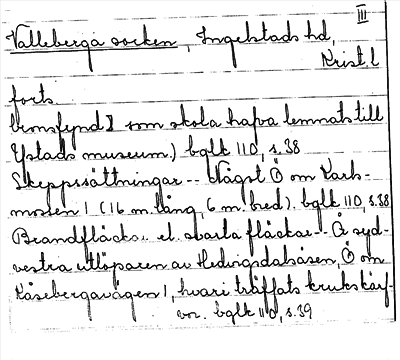 III
Valleberga socken, Ingelstads hd,
Krist. l
forts.
bronsfynd] som skola hafva lemnats till
Ystads museum.) bglk 110, s.38
Skeppssättningar -- Något Ö om Kark-
mossen 1 (16 m. lång, 6 m. bred). bglk 110, s.38
Brandfläck.. el. svarta fläckar -- Å syd-
vestra utlöparen av Hedvigsdalsåsen, Ö om
Kåsebergavägen 1, hvari träffats krukskärf-
vor. bglk 110, s.39